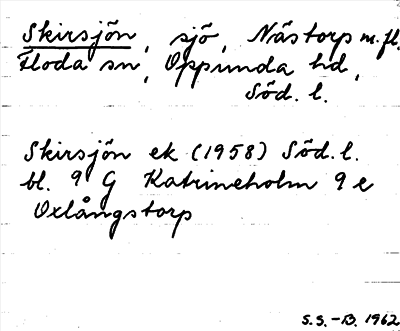 Skirsjön, sjö, Nästorp m.fl.
Floda sn, Oppunda hd,
Söd. l.
Skirsjön ek (1958) Söd. l.
bl. 9 G Katrineholm 9 e
Oxlångstorp
S.S. - B. 1962